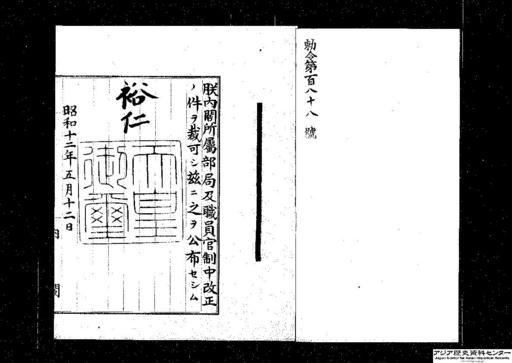 勅令第百八十八號
朕內閣所屬部局及職員官制中改正
ノ件ヲ裁可シ茲ニ之ヲ公布セシム
裕仁
天皇御璽
昭和十二年五月十二日
內閣
アジア歴史資料センター
Japan Center for Asian Historical Records